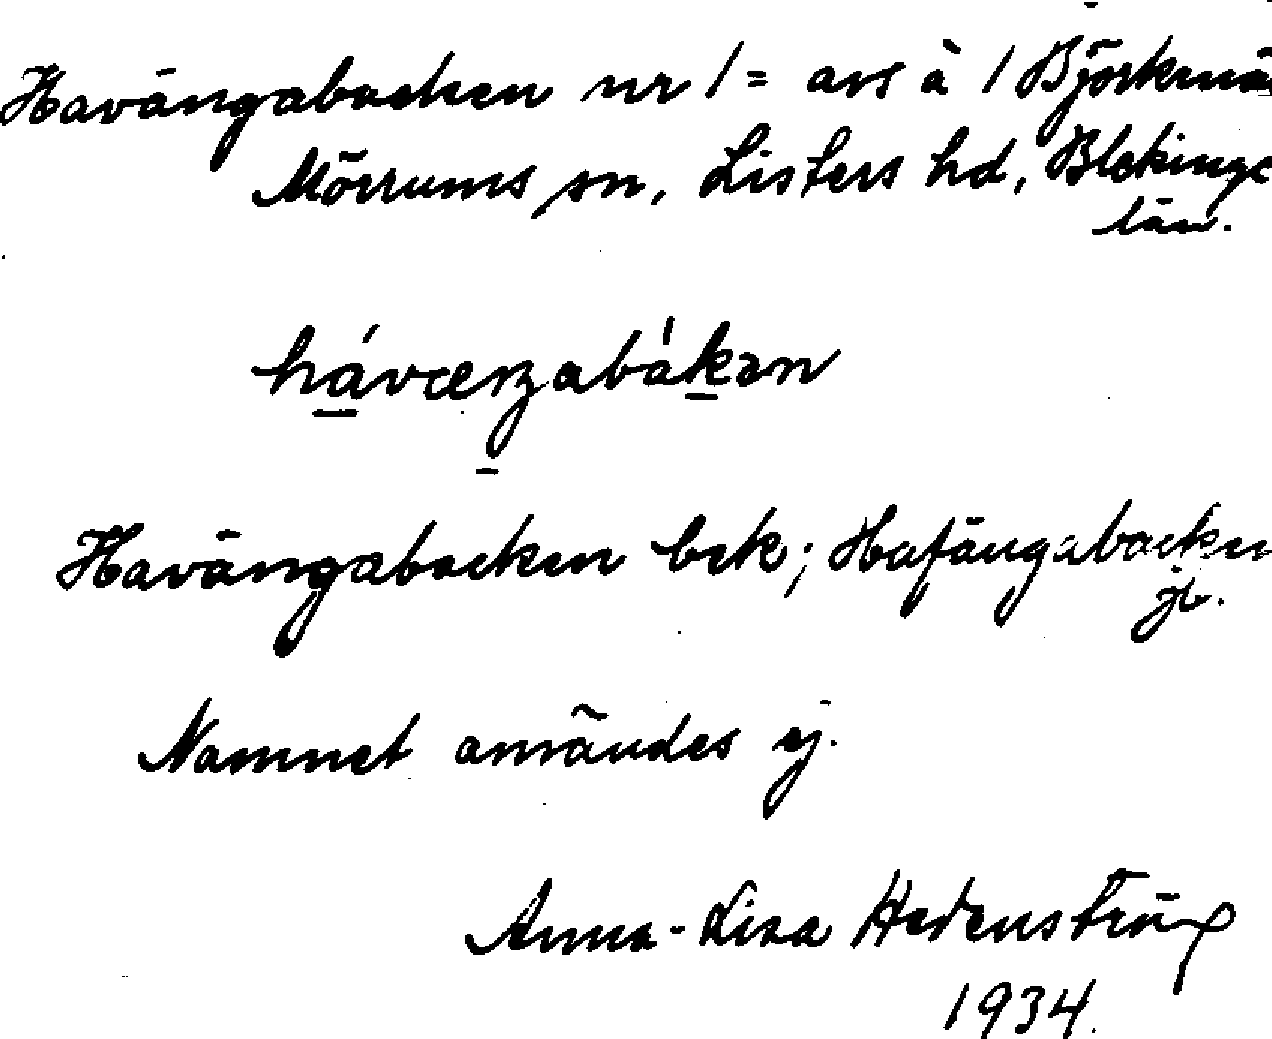 Havängabacken nr 1 = avs à 1 Björknä
Mörrums sn, Listers hd, Blekinge
län.
hávæŋabákən
Havängabacken bek; Hafängabacken
jb.
Namnet användes ej.
Anna-Lisa Hedenström
1934.